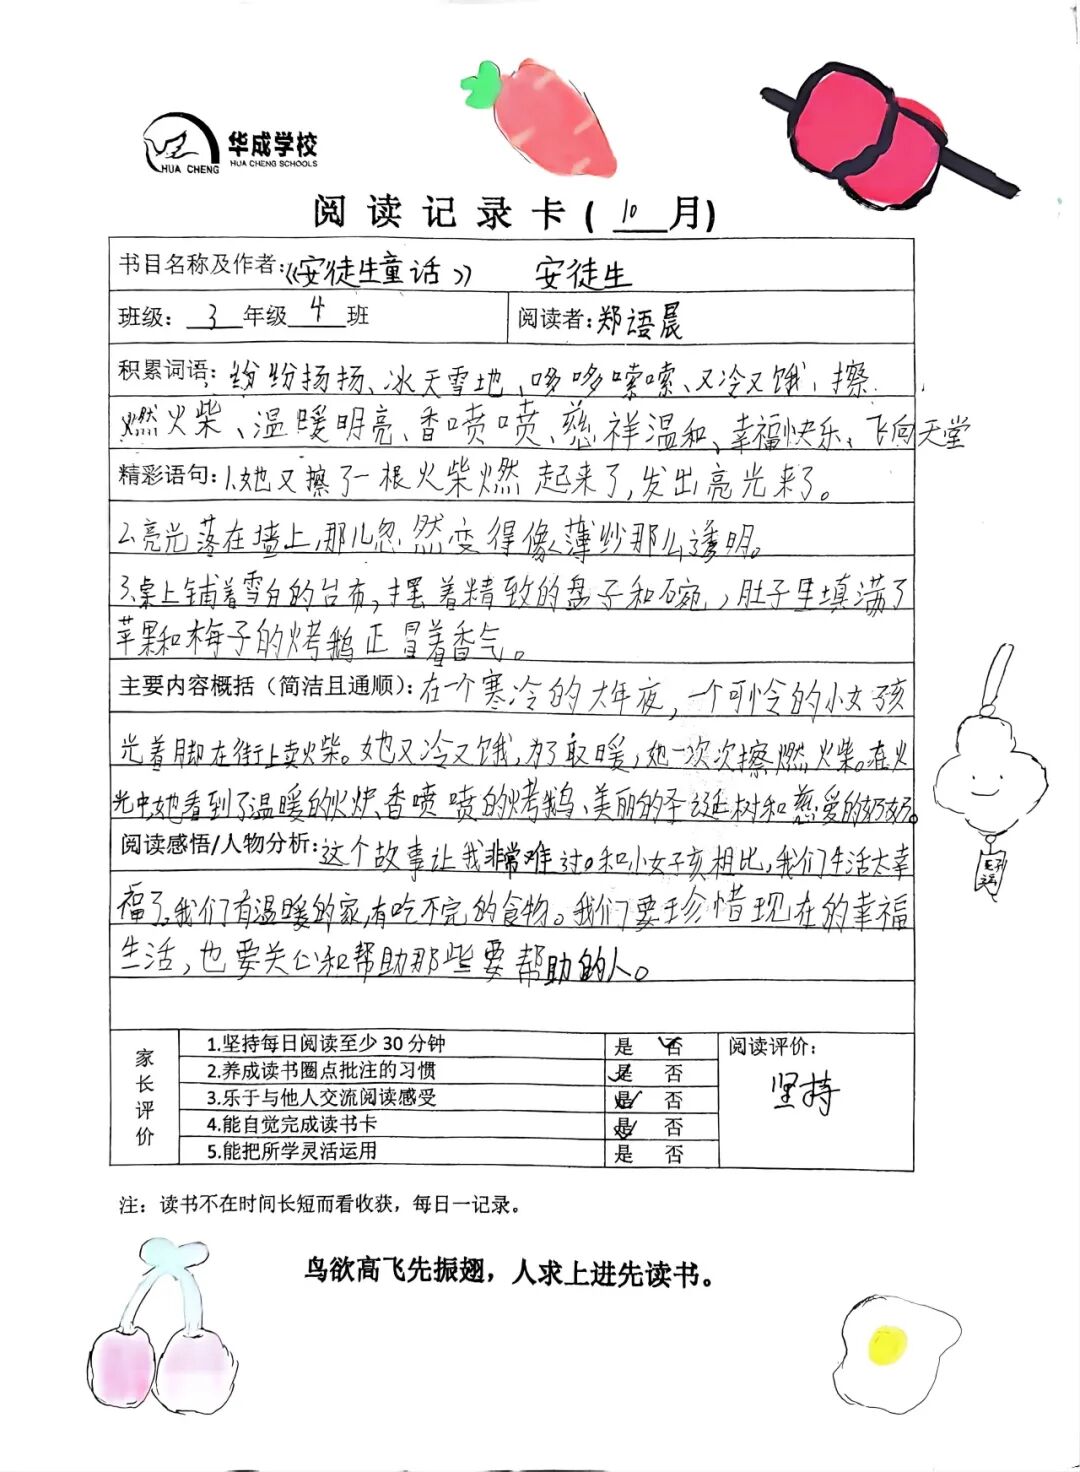 华成学校
HUA CHENG SCHOOLS
HUA CHENG
阅读记录卡(10月)
书目名称及作者:《安徒生童话》 安徒生
班级: 3 年级 4 班 阅读者:郑语晨
积累词语: 纷纷扬扬、冰天雪地、哆哆嗦嗦、又冷又饿、擦
燃火柴、温暖明亮、香喷喷、慈祥温和、幸福快乐、飞向天堂
精彩语句:1.她又擦了一根火柴燃起来了,发出亮光来了。
2.亮光落在墙上,那儿忽然变得像薄纱那么透明。
3.桌上铺着雪白的台布,摆着精致的盘子和碗,肚子里填满了
苹果和梅子的烤鹅正冒着香气。
主要内容概括（简洁且通顺）:在一个寒冷的大年夜,一个可怜的小女孩
光着脚在街上卖火柴。她又冷又饿,为了取暖,她一次次擦燃火柴。在火
光中她看到了温暖的火炉、香喷喷的烤鹅、美丽的圣诞树和慈爱的奶奶。
阅读感悟/人物分析:这个故事让我非常难过。和小女孩相比,我们生活太幸
福了。我们有温暖的家,有吃不完的食物。我们要珍惜现在的幸福
生活,也要关心和帮助那些要帮助的人。
家长评价
1.坚持每日阅读至少30分钟 是 否
2.养成读书圈点批注的习惯 是 否
3.乐于与他人交流阅读感受 是 否
4.能自觉完成读书卡 是 否
5.能把所学灵活运用 是 否
阅读评价:
坚持
注：读书不在时间长短而看收获，每日一记录。
鸟欲高飞先振翅，人求上进先读书。